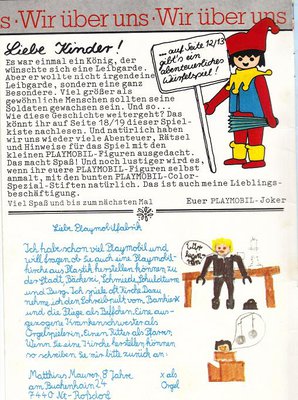 s · Wir über uns · Wir über uns
Liebe Kinder!
... auf Seite 12/13
gibt's ein
abenteuerliches
Würfelspiel!
Es war einmal ein König, der
wünschte sich eine Leibgarde.
Aber er wollte nicht irgendeine
Leibgarde, sondern eine ganz
Besondere. Viel größer als
gewöhnliche Menschen sollten seine
Soldaten gewachsen sein. Und so...
Wie diese Geschichte weitergeht? Das
könnt ihr auf Seite 18/19 dieser Spiel-
kiste nachlesen. Und natürlich haben
wir uns wieder viele Abenteuer, Rätsel
und Hinweise für das Spiel mit den
kleinen PLAYMOBIL-Figuren ausgedacht.
Das macht Spaß! Und noch lustiger wird es,
wenn ihr eure PLAYMOBIL-Figuren selbst
anmalt, mit den bunten PLAYMOBIL-Color-
Spezial-Stiften natürlich. Das ist auch meine Lieblings-
beschäftigung.
Viel Spaß und bis zum nächsten Mal
Euer PLAYMOBIL-Joker
Liebe Playmobilfabrik
Ich hab schon viel Playmobil und
will fragen ob Sie auch eine Playmobil-
kirche aus Plastik herstellen können zu
der Stadt, Bäckerei, Schmiede, Schuldturm
und Burg. Ich spiele oft Kirche. Dazu
nehme ich den Schreibpult vom
und die als Eine aus-
gezogene Krankenschwester als
Orgelspielerin. Einen Ritter als Pfarrer.
Wenn Sie eine Kirche herstellen können
so schreiben Sie mir bitte zurück an:
Matthias Maurer, 8 Jahre
am Buchenhain 27
7440 Nt-Roßdorf
x als
Orgel